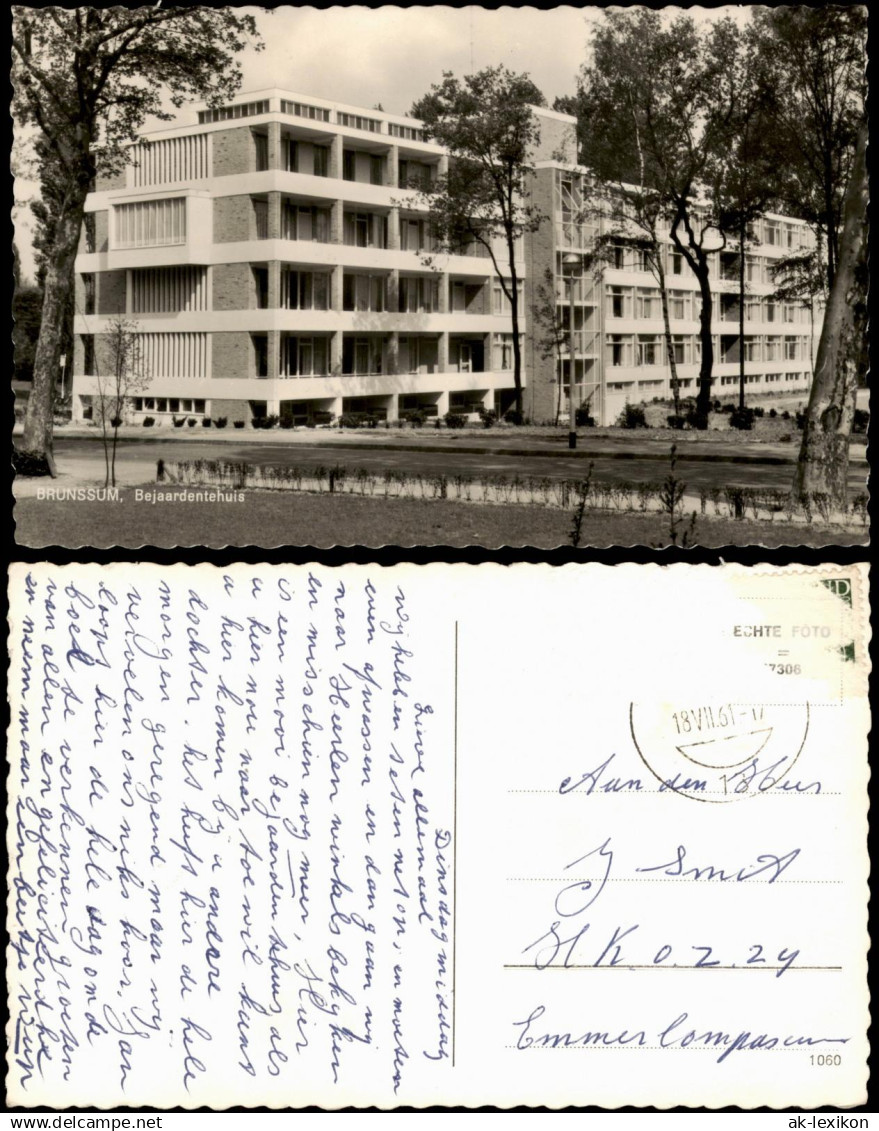 BRUNSSUM, Bejaardentehuis
Dinsdag middag
Lieve allemaal
wij hebben eeten net op, en moeten
even afwassen en dan gaan wij
naar Heerlen winkels bekijken
en misschien nog meer, Hier
is een mooi bejaardentehuis als
u hier nou naar toe wil kunt
u hier komen bij u andere
dochter. het heeft hier de hele
morgen geregend maar wij
vervelen ons niks hoor, Jan
loopt hier de hele dag om de
boel te verkennen, groeten
van allen en gefeliciteerd he
en neem maar een beetje
ECHTE FOTO
=
7306
18 VII.61-17
Aan den Heer
J Smit
H K 0.Z.24
Emmer Compascuum
1060
delcampe.net
ak-lexikon